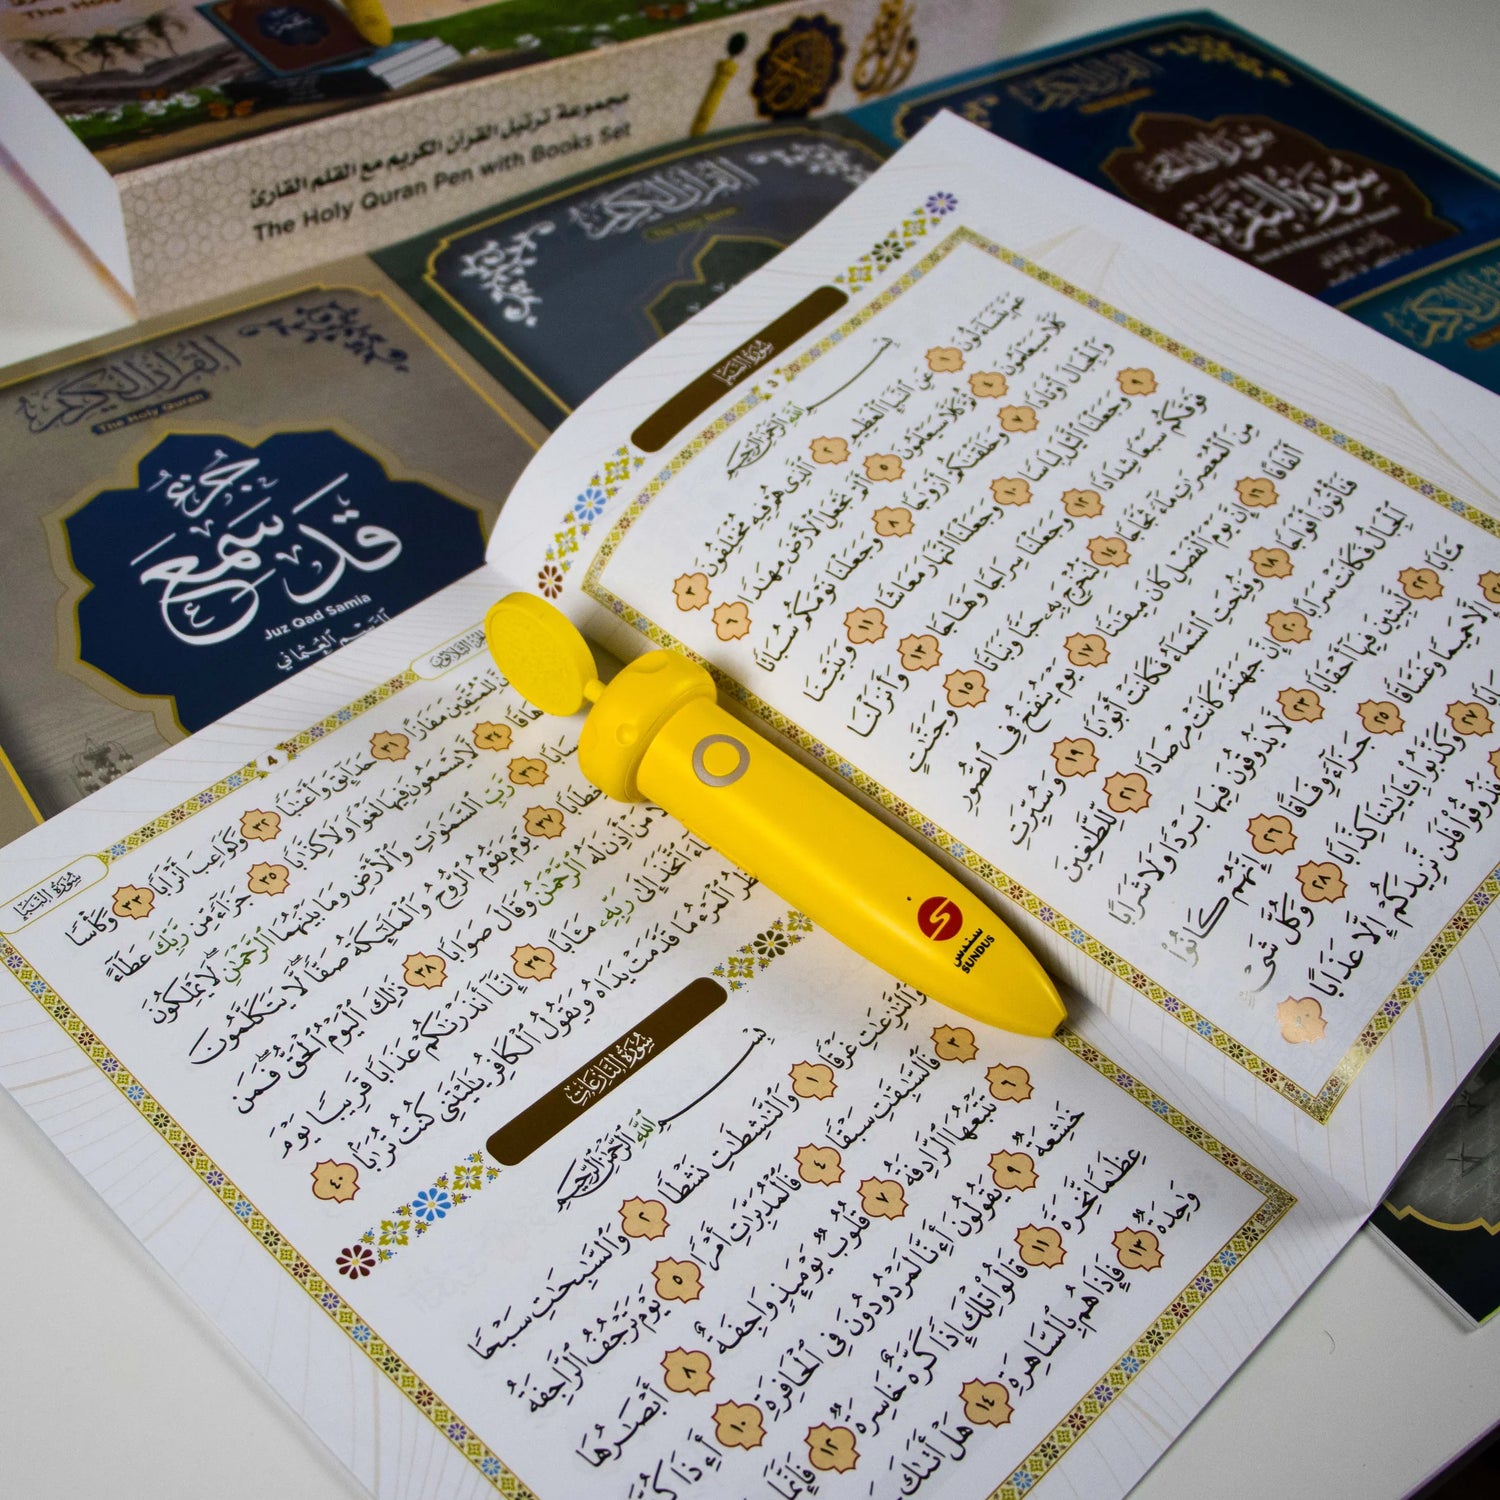 مجموعة ترتيل القرآن الكريم مع القلم القارئ
The Holy Quran Pen with Books Set
القرآن الكريم
The Holy Quran
جزء
قد سمع
Juz Qad Samia
القرآن الكريم
القرآن الكريم
سورة الفاتحة
سورة البقرة
سُورَةُ النَّبَإِ
3
بِسْمِ ٱللَّهِ ٱلرَّحْمَٰنِ ٱلرَّحِيمِ
عَمَّ يَتَسَآءَلُونَ ١ عَنِ ٱلنَّبَإِ ٱلْعَظِيمِ ٢ ٱلَّذِى هُمْ فِيهِ مُخْتَلِفُونَ ٣
كَلَّا سَيَعْلَمُونَ ٤ ثُمَّ كَلَّا سَيَعْلَمُونَ ٥ أَلَمْ نَجْعَلِ ٱلْأَرْضَ مِهَٰدًا ٦
وَٱلْجِبَالَ أَوْتَادًا ٧ وَخَلَقْنَٰكُمْ أَزْوَٰجًا ٨ وَجَعَلْنَا نَوْمَكُمْ سُبَاتًا
٩ وَجَعَلْنَا ٱلَّيْلَ لِبَاسًا ١٠ وَجَعَلْنَا ٱلنَّهَارَ مَعَاشًا ١١ وَبَنَيْنَا
فَوْقَكُمْ سَبْعًا شِدَادًا ١٢ وَجَعَلْنَا سِرَاجًا وَهَّاجًا ١٣ وَأَنزَلْنَا
مِنَ ٱلْمُعْصِرَٰتِ مَآءً ثَجَّاجًا ١٤ لِّنُخْرِجَ بِهِۦ حَبًّا وَنَبَاتًا ١٥ وَجَنَّٰتٍ
أَلْفَافًا ١٦ إِنَّ يَوْمَ ٱلْفَصْلِ كَانَ مِيقَٰتًا ١٧ يَوْمَ يُنفَخُ فِى ٱلصُّورِ
فَتَأْتُونَ أَفْوَاجًا ١٨ وَفُتِحَتِ ٱلسَّمَآءُ فَكَانَتْ أَبْوَٰبًا ١٩ وَسُيِّرَتِ
ٱلْجِبَالُ فَكَانَتْ سَرَابًا ٢٠ إِنَّ جَهَنَّمَ كَانَتْ مِرْصَادًا ٢١ لِّلطَّٰغِينَ
مَـَٔابًا ٢٢ لَّٰبِثِينَ فِيهَآ أَحْقَابًا ٢٣ لَّا يَذُوقُونَ فِيهَا بَرْدًا وَلَا شَرَابًا
إِلَّا حَمِيمًا وَغَسَّاقًا ٢٥ جَزَآءً وِفَاقًا ٢٦ إِنَّهُمْ كَانُوا۟
٢٧ وَكَذَّبُوا۟ بِـَٔايَٰتِنَا كِذَّابًا ٢٨ وَكُلَّ شَىْءٍ
فَذُوقُوا۟ فَلَن نَّزِيدَكُمْ إِلَّا عَذَابًا ٣٠
4
سُورَةُ النَّبَإِ
لِلْمُتَّقِينَ مَفَازًا ٣١ حَدَآئِقَ وَأَعْنَٰبًا ٣٢ وَكَوَاعِبَ أَتْرَابًا ٣٣ وَكَأْسًا
٣٤ لَّا يَسْمَعُونَ فِيهَا لَغْوًا وَلَا كِذَّٰبًا ٣٥ جَزَآءً مِّن رَّبِّكَ عَطَآءً
٣٦ رَّبِّ ٱلسَّمَٰوَٰتِ وَٱلْأَرْضِ وَمَا بَيْنَهُمَا ٱلرَّحْمَٰنِ لَا يَمْلِكُونَ
خِطَابًا ٣٧ يَوْمَ يَقُومُ ٱلرُّوحُ وَٱلْمَلَٰٓئِكَةُ صَفًّا لَّا يَتَكَلَّمُونَ
مَنْ أَذِنَ لَهُ ٱلرَّحْمَٰنُ وَقَالَ صَوَابًا ٣٨ ذَٰلِكَ ٱلْيَوْمُ ٱلْحَقُّ فَمَن
ٱتَّخَذَ إِلَىٰ رَبِّهِۦ مَـَٔابًا ٣٩ إِنَّآ أَنذَرْنَٰكُمْ عَذَابًا قَرِيبًا يَوْمَ
ٱلْمَرْءُ مَا قَدَّمَتْ يَدَاهُ وَيَقُولُ ٱلْكَافِرُ يَٰلَيْتَنِى كُنتُ تُرَٰبًۢا ٤٠
سُورَةُ النَّازِعَاتِ
بِسْمِ ٱللَّهِ ٱلرَّحْمَٰنِ ٱلرَّحِيمِ
وَٱلنَّٰزِعَٰتِ غَرْقًا ١ وَٱلنَّٰشِطَٰتِ نَشْطًا ٢ وَٱلسَّٰبِحَٰتِ سَبْحًا
٣ فَٱلسَّٰبِقَٰتِ سَبْقًا ٤ فَٱلْمُدَبِّرَٰتِ أَمْرًا ٥ يَوْمَ تَرْجُفُ ٱلرَّاجِفَةُ
٦ تَتْبَعُهَا ٱلرَّادِفَةُ ٧ قُلُوبٌ يَوْمَئِذٍ وَاجِفَةٌ ٨ أَبْصَٰرُهَا
خَٰشِعَةٌ ٩ يَقُولُونَ أَءِنَّا لَمَرْدُودُونَ فِى ٱلْحَافِرَةِ ١٠ أَءِذَا كُنَّا
عِظَٰمًا نَّخِرَةً ١١ قَالُوا۟ تِلْكَ إِذًا كَرَّةٌ خَاسِرَةٌ ١٢ فَإِنَّمَا
وَٰحِدَةٌ ١٣ فَإِذَا هُم بِٱلسَّاهِرَةِ ١٤ هَلْ أَتَىٰكَ
سندس
SUNDUS